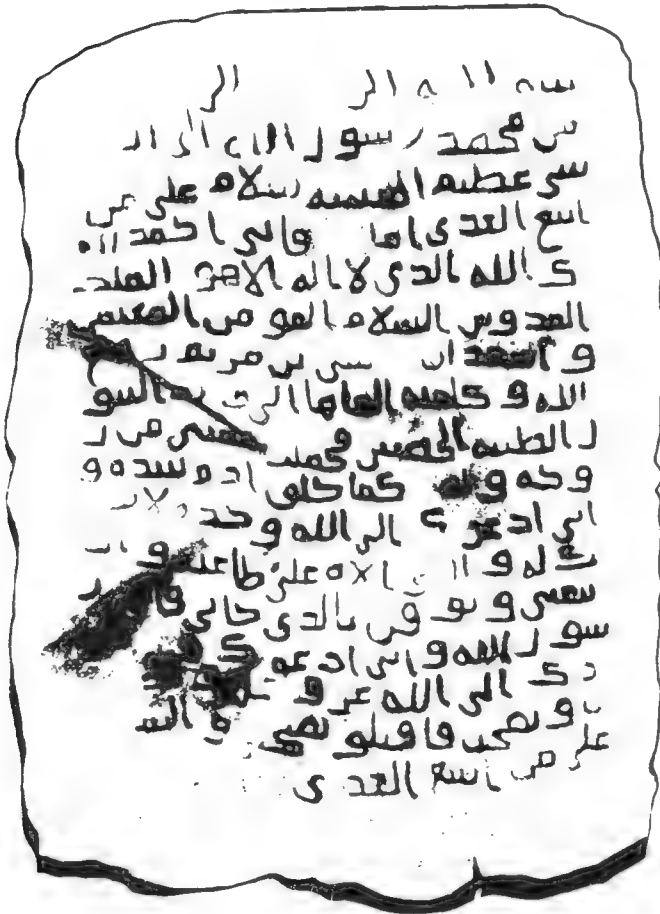 سم الله الر الر
من محمد رسول الله الى ال
سى عظيم الحبشه سلام على من
اتبع الهدى اما فانى احمد الي
ك الله الذى لا اله الا هو الملك
القدوس السلام المومن المهيمن
و اشهد ان عيسى بن مريم ر
الله و كلمته القاها الى البتو
ل الطيبه الحصينه فحملت بعيسى من ر
وحه و كما خلق ادم بيده و
انى ادعوك الى الله وحده لا
ك له و الموالاه على طاعته و ان
تتبعنى و توقن بالذى جانى فانى ر
سول الله و انى ادعوك
دك الى الله عز و
و نصحت فاقبلو نصيحتى و السلم
على من اتبع الهدى